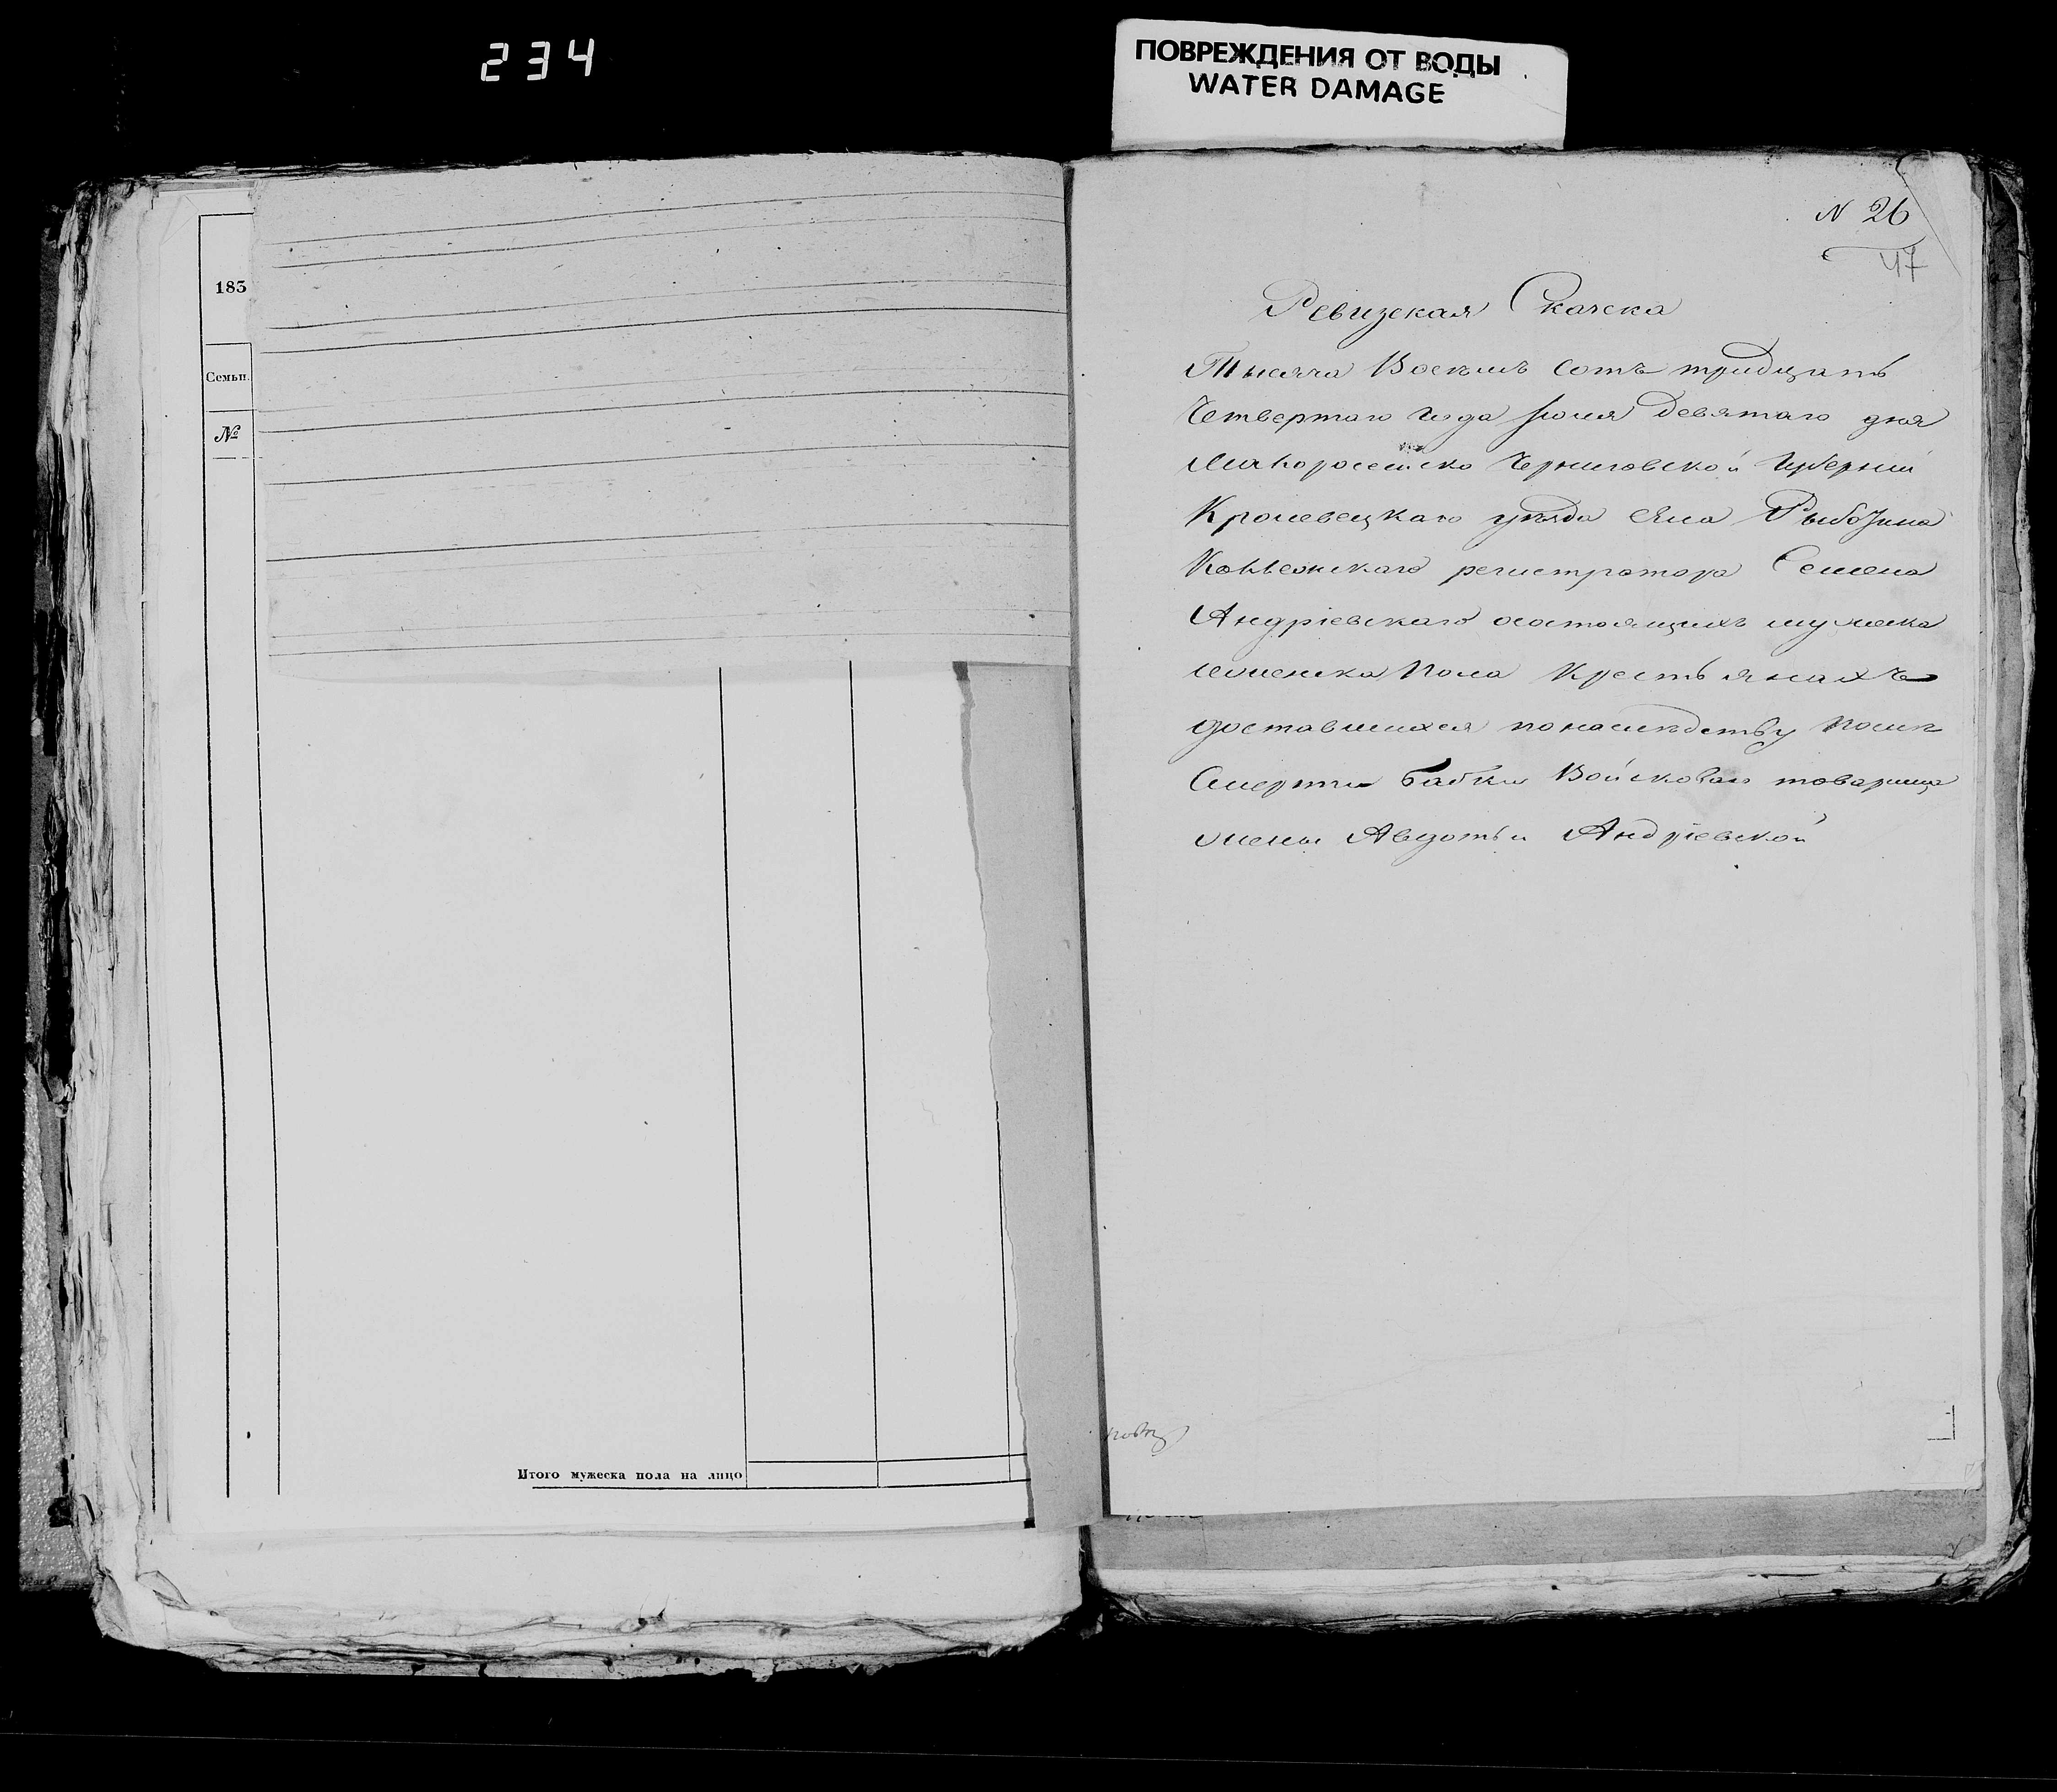 234
ПОВРЕЖДЕНИЯ ОТ ВОДЫ
WATER DAMAGE
183
Семьи.
№
Итого мужеска пола на лицо
N 26
47
Ревизская Скаска
Тысяча Восемь сотъ тридцать
Четвертаго года Іюня девятаго дня
Малороссійско Черниговской Губерніи
Кролевецкаго уезда села Рыботина
Коллежскаго регистратора Семена
Андріевскаго о состоящихъ мужеска
и женска пола Крестьянахъ
доставшихся по наследству после
Смерти бабки Войсковаго товарища
жены Авдотьи Андріевской